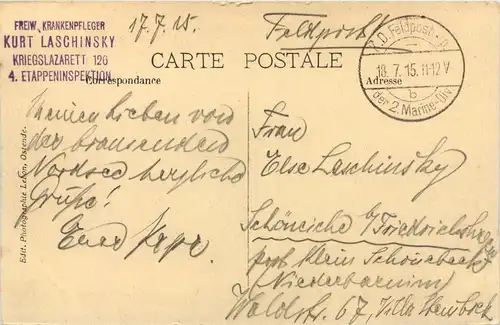 FREIW. KRANKENPFLEGER
KURT LASCHINSKY
KRIEGSLAZARETT 126
4. ETAPPENINSPEKTION
17.7.15.
Feldpost
K.D. Feldpost-
18.7.15.11-12V
b
der 2. Marine-Div
CARTE POSTALE
Correspondance
Adresse
Meinen Lieben von
der brausenden
Nordsee herzliche
Grüße!
Euer
Frau
Else Laschinsky
Schöneiche b/Friedrichshagen
Post Klein Schönebeck
Niederbarnim
Waldstr. 67, Villa
Edit. Photographie Lebon, Ostende.